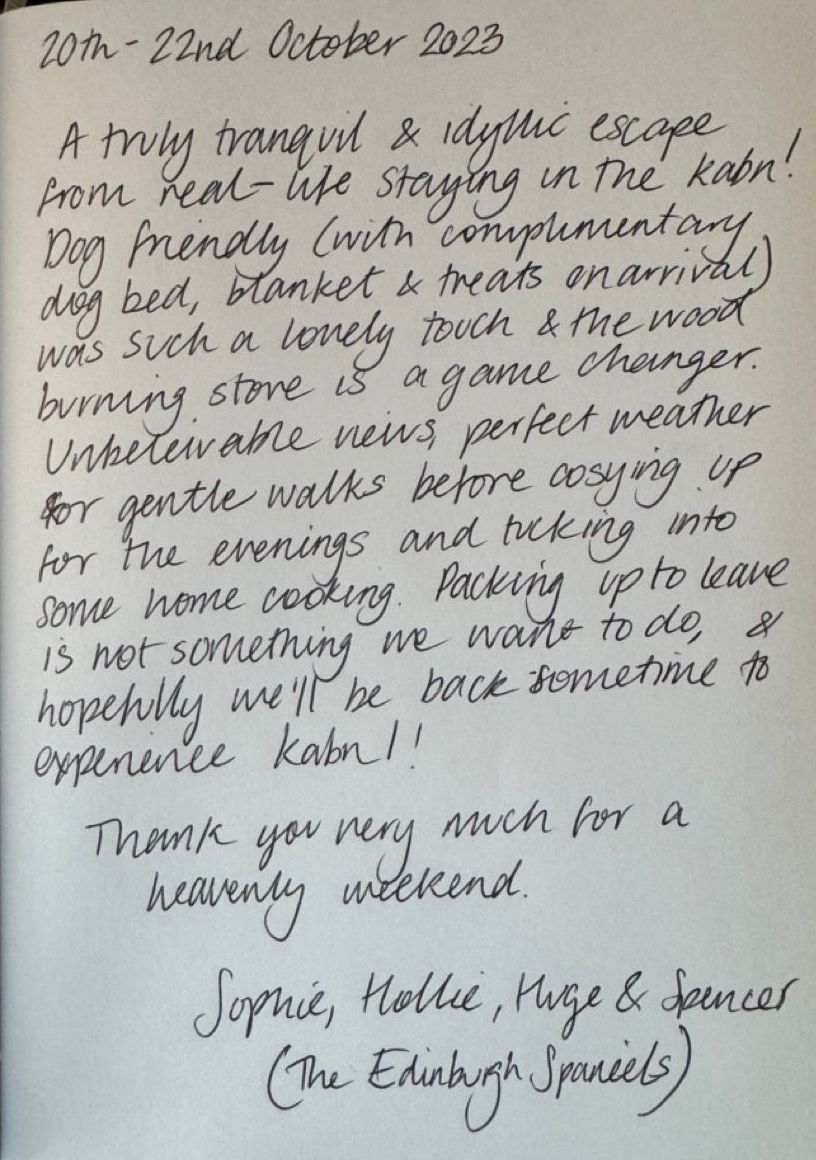 20th - 22nd October 2023
A truly tranquil & idyllic escape
from real-life staying in the kabn!
Dog friendly (with complimentary
dog bed, blanket & treats on arrival)
was such a lovely touch & the wood
burning stove is a game changer.
Unbeleivable views, perfect weather
for gentle walks before cosying up
for the evenings and tucking into
some home cooking. Packing up to leave
is not something we want to do, &
hopefully we'll be back sometime to
experience kabn 1!
Thank you very much for a
heavenly weekend.
Sophie, Hollie, Huge & Spencer
(The Edinburgh Spaniels)